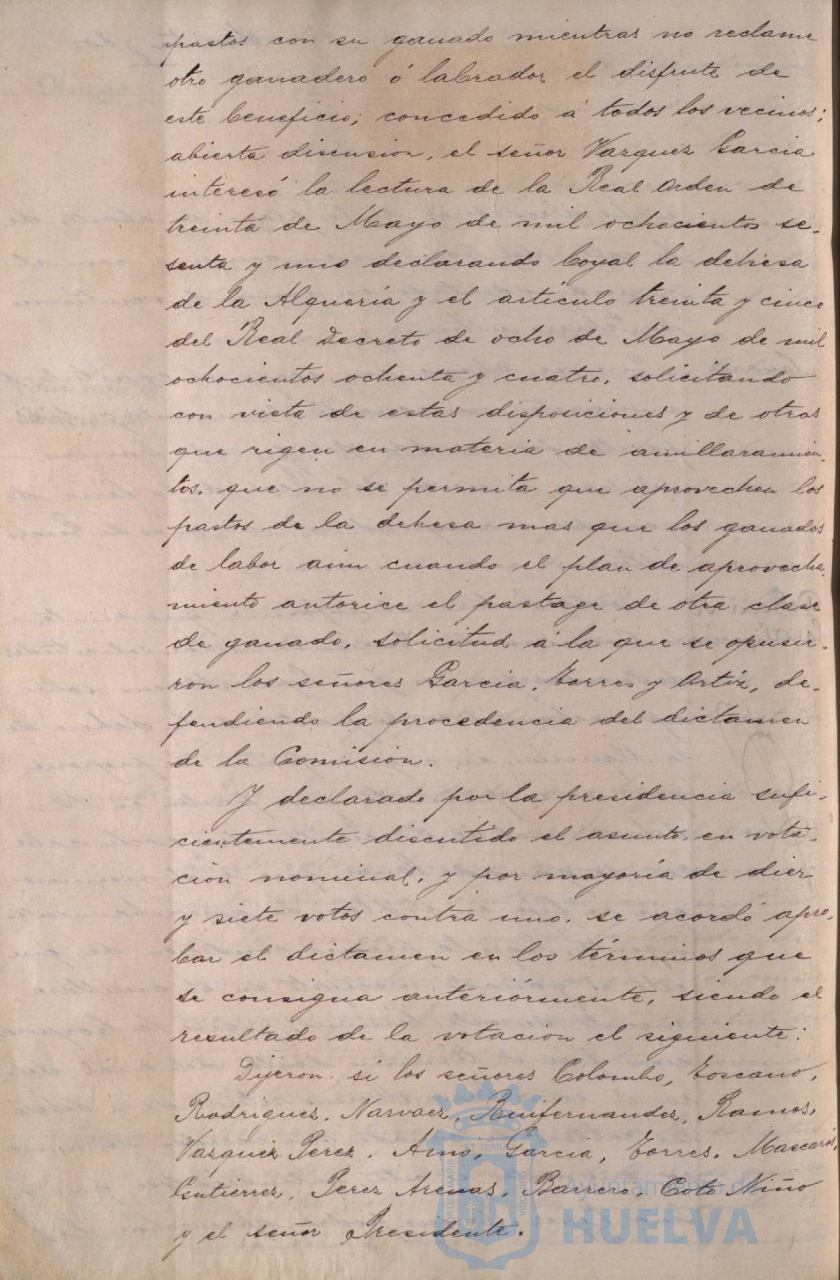 pastos con su ganado mientras no reclame
otro ganadero ó labrador el disfrute de
este beneficio; concedido á todos los vecinos;
abierta discusion, el señor Vazquez Garcia
interesó la lectura de la Real Orden de
treinta de Mayo de mil ochocientos se-
senta y uno declarando boyal la dehesa
de la Alquería y el artículo treinta y cinco
del Real Decreto de ocho de Mayo de mil
ochocientos ochenta y cuatro, solicitando
con vista de estas disposiciones y de otras
que rigen en materia de amillaramien-
tos, que no se permita que aprovechen los
pastos de la dehesa mas que los ganados
de labor aun cuando el plan de aprovecha-
miento autorice el pastage de otra clase
de ganado, solicitud á la que se opusie-
ron los señores Garcia, Torres y Ortíz, de-
fendiendo la procedencia del dictamen
de la Comisión.
Y declarado por la presidencia sufi-
cientemente discutido el asunto, en vota-
ción nominal, y por mayoría de diez
y siete votos contra uno, se acordó apro-
bar el dictamen en los términos que
se consigna anteriórmente, siendo el
resultado de la votacion el siguiente:
Dijeron si los señores Colombo, Toscano,
Rodriguez, Narvaez, Ruifernandez, Ramos,
Vazquez Perez, Amo, Garcia, Torres, Mascarós,
Gutierrez, Perez Arenas, Barrero, Coto, Niño
y el señor Presidente.
Ayuntamiento de
HUELVA